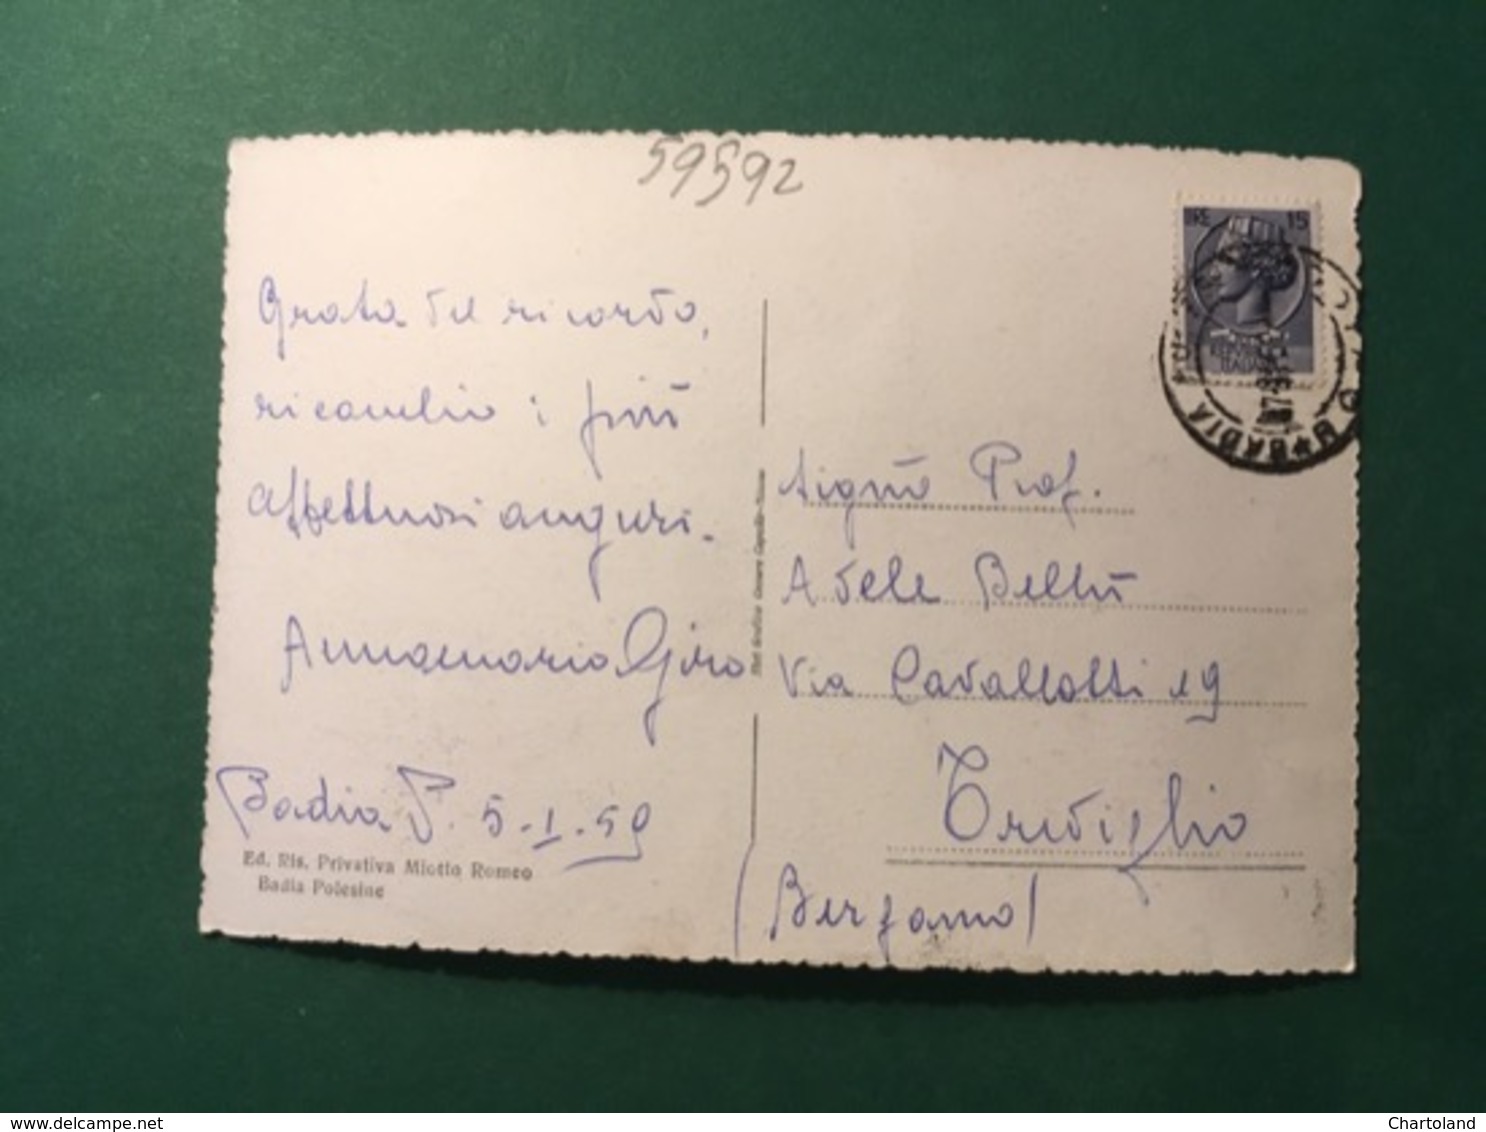 59592
Grata del ricordo,
ricambio i più
affettuosi auguri.
Annamaria Giro
Badia P. 5-1-59
Ed. Ris. Privativa Miotto Romeo
Badia Polesine
LIRE 15
BADIA
Prof.
Adele Bellù
Via Cavallotti 19
Treviglio
(Bergamo)
delcampe.net
Chartoland